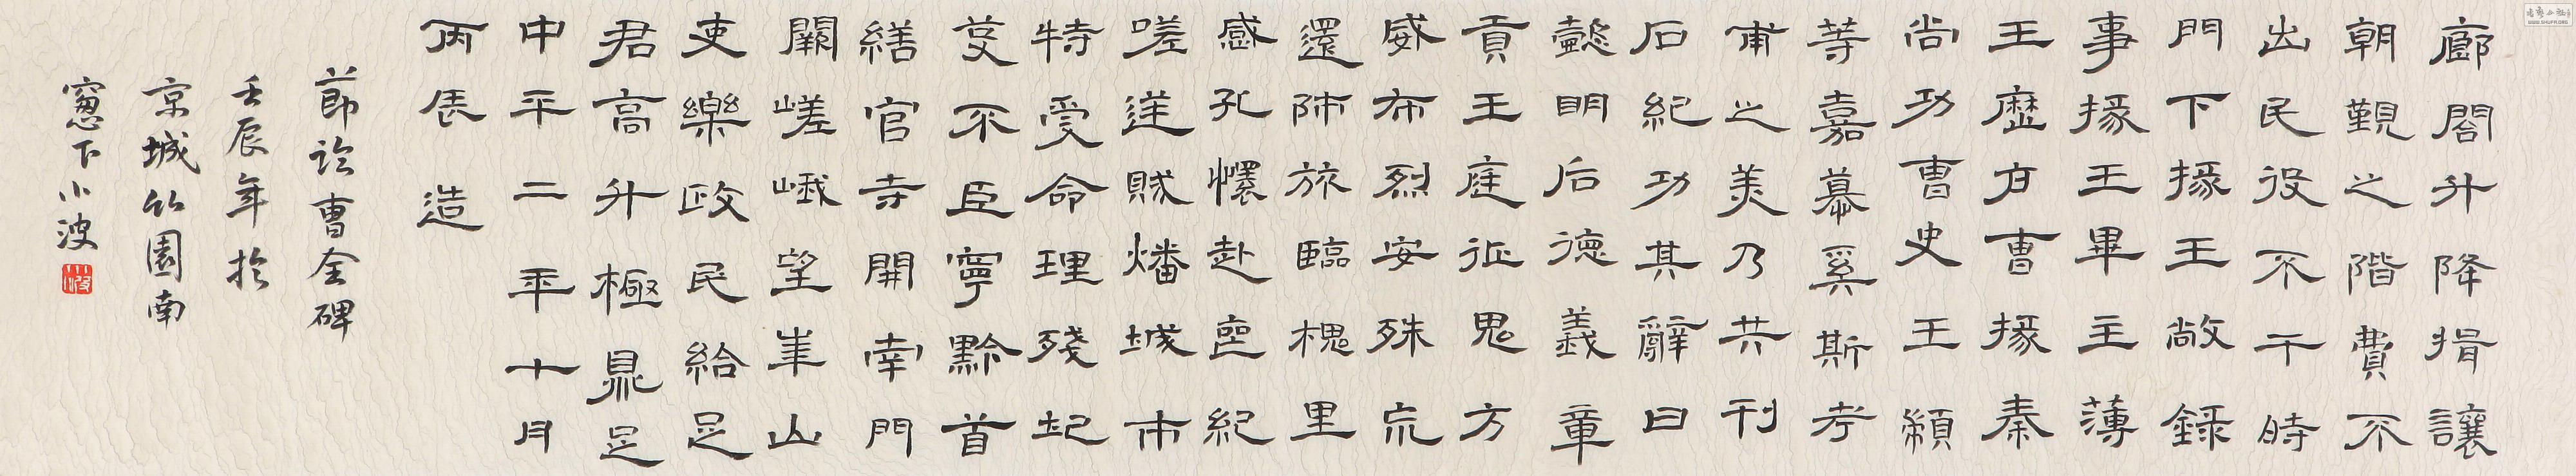 廊閣升降揖讓
朝覲之階費不
出民役不干時
門下掾王敞錄
事掾王畢主薄
王歷戶曹掾秦
尚功曹史王顓
等嘉慕奚斯考
甫之美乃共刊
石紀功其辭曰
懿明后德義章
貢王庭征鬼方
威布烈安殊荒
還師旅臨槐里
感孔懷赴喪紀
嗟逆賊燔城市
特受命理殘圮
芟不臣寧黔首
繕官寺開南門
闕嵯峨望崋山
吏樂政民給足
君高升極鼎足
中平二年十月
丙辰造
節臨曹全碑
壬辰年於
京城竹園南
窗下小波